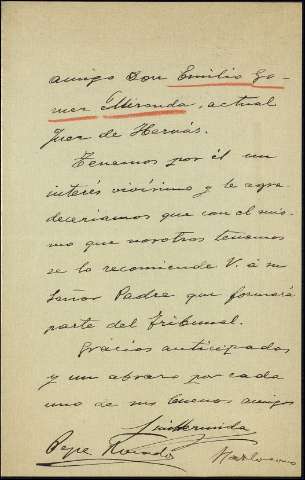 amigo Don Emilio Go-
mez Miranda, actual
Juez de Hervás.
Tenemos por él un
interés vivísimo y le agra-
deceríamos que con el mis-
mo que nosotros tenemos
se lo recomiende V. á su
Señor Padre que formará
parte del Tribunal.
Gracias anticipadas
y un abrazo por cada
uno de sus buenos amigos
Pepe